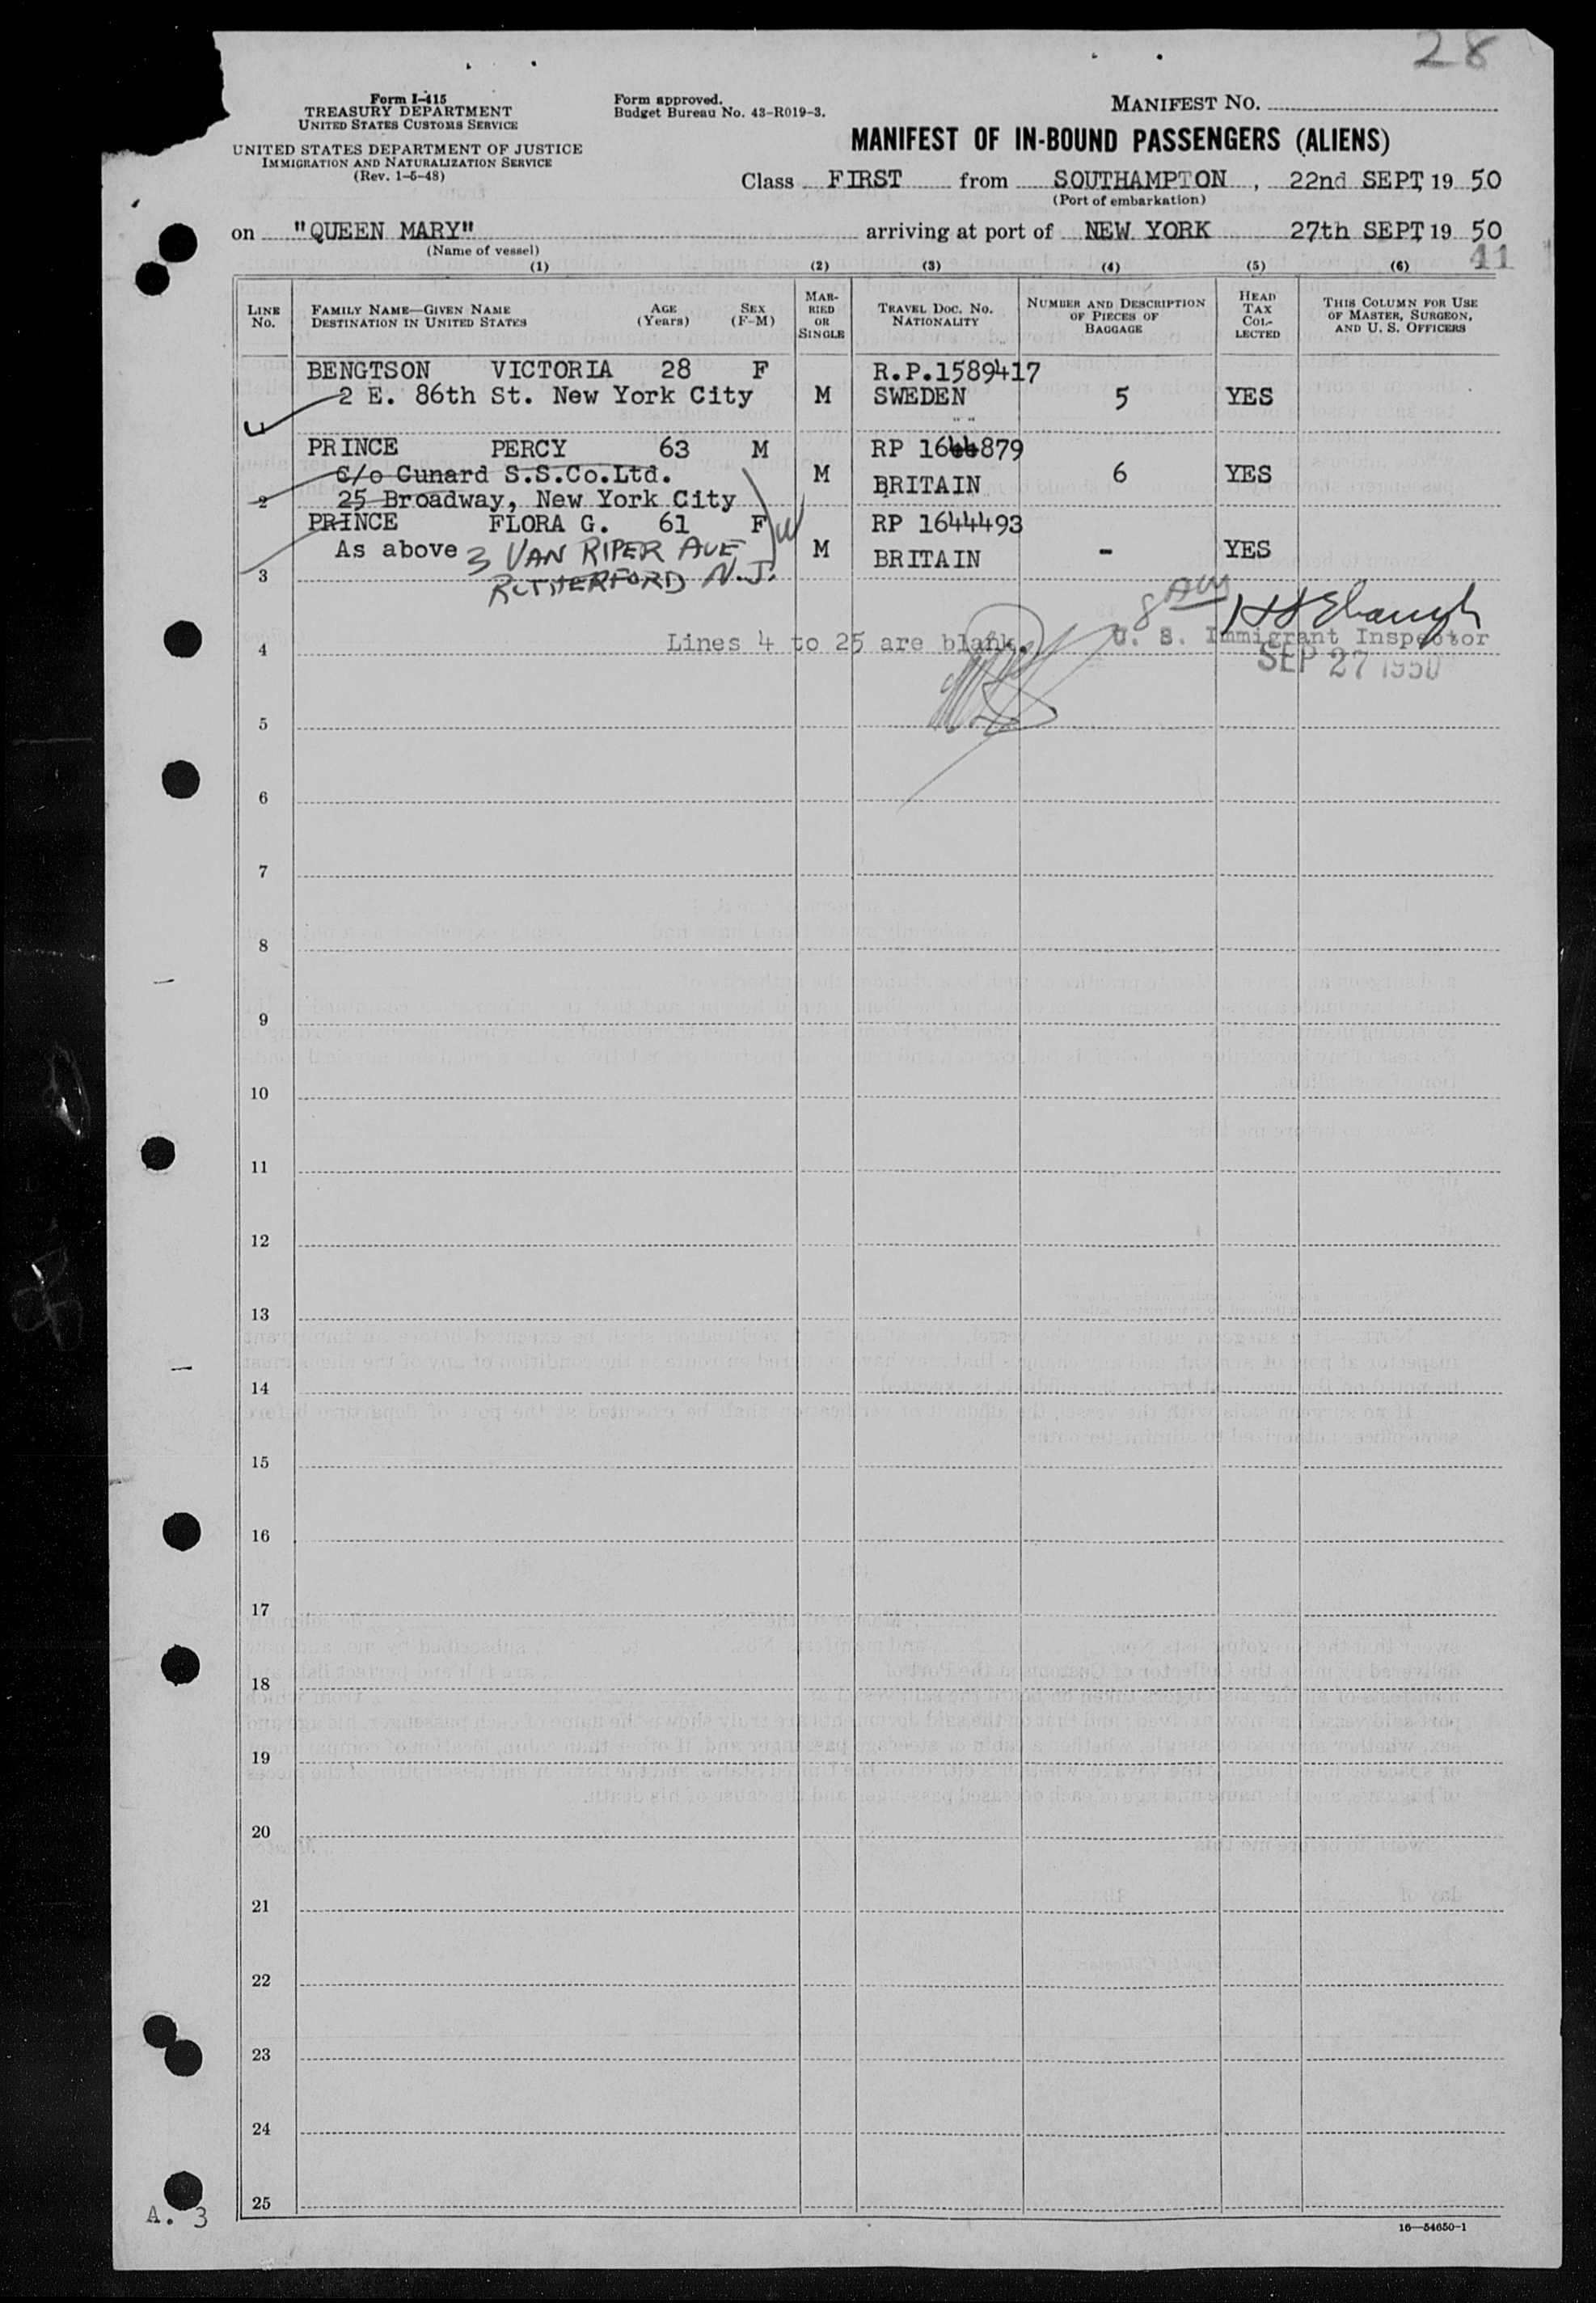 28
Form I-415
TREASURY DEPARTMENT
UNITED STATES CUSTOMS SERVICE
UNITED STATES DEPARTMENT OF JUSTICE
IMMIGRATION AND NATURALIZATION SERVICE
(Rev. 1-5-48)
Form approved.
Budget Bureau No. 43-R019-3.
MANIFEST NO.
MANIFEST OF IN-BOUND PASSENGERS (ALIENS)
Class FIRST from SOUTHAMPTON, 22nd SEPT 19 50
(Port of embarkation)
on "QUEEN MARY" arriving at port of NEW YORK 27th SEPT 19 50
(Name of vessel)
41
(1) (2) (3) (4) (5) (6)
LINE No.
FAMILY NAME—GIVEN NAME
DESTINATION IN UNITED STATES
AGE (Years)
SEX (F-M)
MARRIED OR SINGLE
TRAVEL DOC. NO. NATIONALITY
NUMBER AND DESCRIPTION OF PIECES OF BAGGAGE
HEAD TAX COLLECTED
THIS COLUMN FOR USE OF MASTER, SURGEON, AND U. S. OFFICERS
BENGTSON VICTORIA 28 F R.P.1589417
2 E. 86th St. New York City M SWEDEN 5 YES
1
PRINCE PERCY 63 M RP 1644879
C/o Cunard S.S.Co.Ltd. M BRITAIN 6 YES
2 25 Broadway, New York City
PRINCE FLORA G. 61 F RP 1644493
As above 3 VAN RIPER AVE M BRITAIN - YES
3 RUTHERFORD N.J.
4 Lines 4 to 25 are blank. U. S. Immigrant Inspector
SEP 27 1950
5
6
7
8
9
10
11
12
13
14
15
16
17
18
19
20
21
22
23
24
25
A. 3
16—54650-1